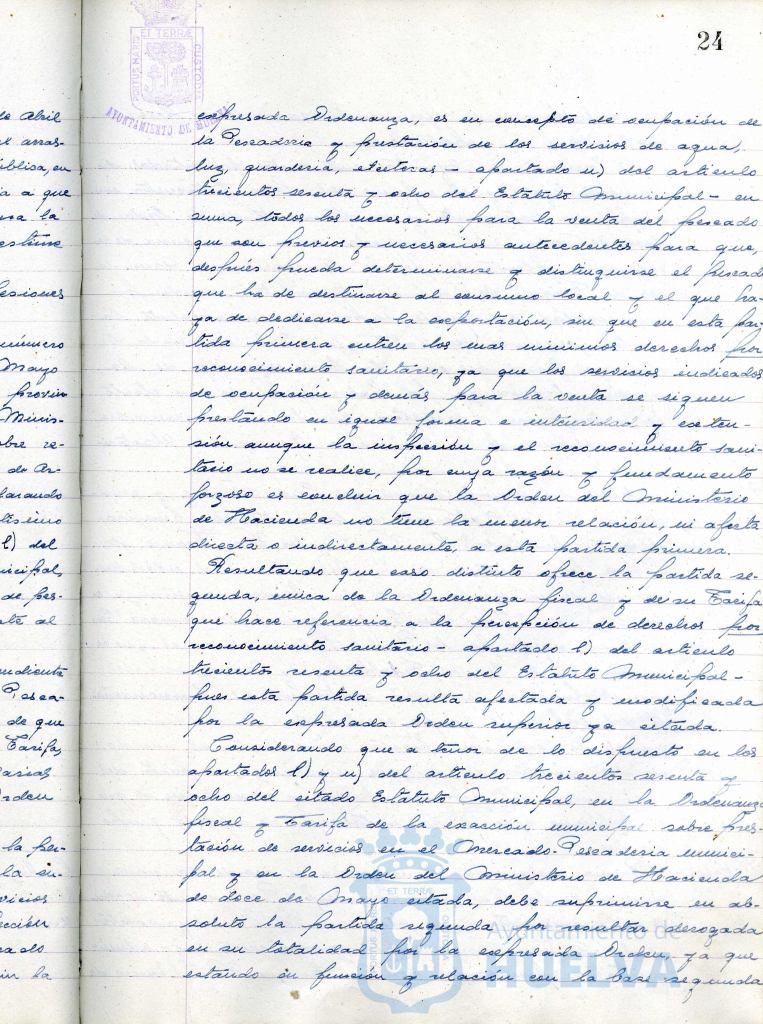 24
PORTUS MARIS ET TERRÆ CUSTODIA
AYUNTAMIENTO DE HUELVA
expresada Ordenanza, es en concepto de ocupación de
la Pescaderia y prestación de los servicios de agua,
luz, guarderia, etcétera - apartado u) del articulo
trecientos sesenta y ocho del Estatuto Municipal - en
suma, todos los necesarios para la venta del pescado
que son previos y necesarios antecedentes para que,
después pueda determinarse y distinguirse el pescado
que ha de destinarse al consumo local y el que ha-
ya de dedicarse a la exportación, sin que en esta par-
tida primera entren los mas minimos derechos por
reconocimiento sanitario, ya que los servicios indicados
de ocupación y demás para la venta se siguen
prestando en igual forma e intensidad y exten-
sión aunque la inspección y el reconocimiento sani-
tario no se realice, por cuya razón y fundamento
forzoso es concluir que la Orden del Ministerio
de Hacienda no tiene la menor relación, ni afecta
directa o indirectamente, a esta partida primera.
Resultando que caso distinto ofrece la partida se-
gunda, única de la Ordenanza fiscal y de su Tarifa
que hace referencia a la percepción de derechos por
reconocimiento sanitario - apartado l) del articulo
trecientos sesenta y ocho del Estatuto Municipal -
pues esta partida resulta afectada y modificada
por la expresada Orden superior ya citada.
Considerando que a tenor de lo dispuesto en los
apartados l) y u) del articulo trecientos sesenta y
ocho del citado Estatuto Municipal, en la Ordenanza
fiscal y Tarifa de la exacción municipal sobre pres-
tación de servicios en el Mercado-Pescaderia munici-
pal y en la Orden del Ministerio de Hacienda
de doce de Mayo citada, debe suprimirse en ab-
soluto la partida segunda por resultar derogada
en su totalidad por la expresada Orden, ya que
estando en función y relación con la base segunda
Ayuntamiento de
HUELVA